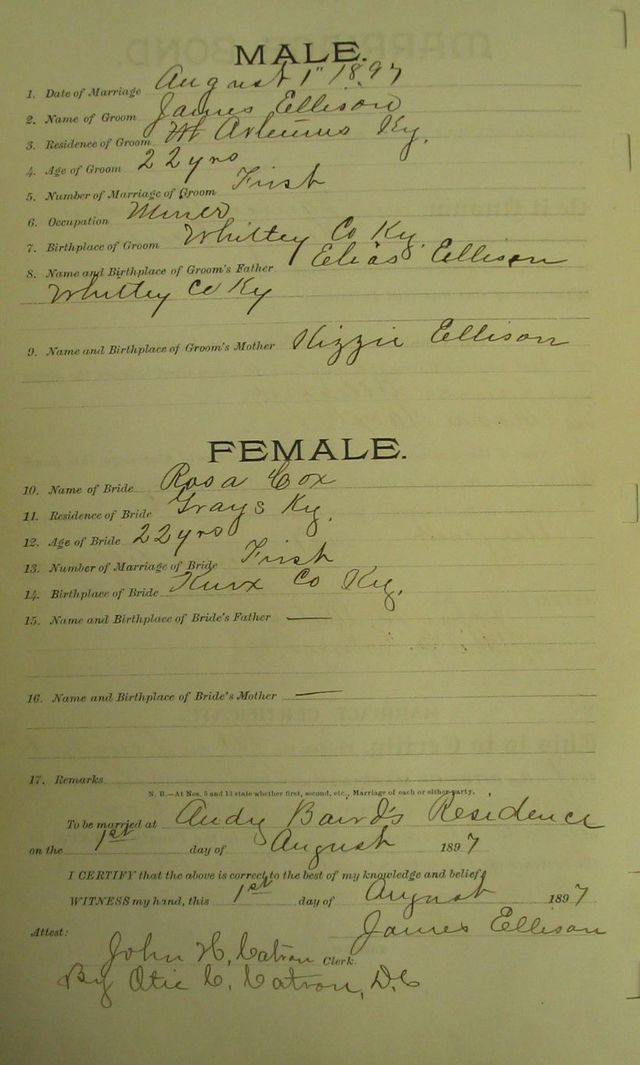 MALE.
1. Date of Marriage August 1" 1897
2. Name of Groom James Ellison
3. Residence of Groom Ky.
4. Age of Groom 22 yrs
5. Number of Marriage of Groom First
6. Occupation Miner
7. Birthplace of Groom Whitley Co Ky.
8. Name and Birthplace of Groom's Father Elias Ellison
Whitley Co Ky
9. Name and Birthplace of Groom's Mother Kizzie Ellison
FEMALE.
10. Name of Bride Rosa Cox
11. Residence of Bride Grays Ky.
12. Age of Bride 22 yrs
13. Number of Marriage of Bride First
14. Birthplace of Bride Knox Co Ky.
15. Name and Birthplace of Bride's Father —
16. Name and Birthplace of Bride's Mother —
17. Remarks
N. B.—At Nos. 5 and 13 state whether first, second, etc., Marriage of each or either party.
To be married at Andy Baird's Residence
on the 1st day of August 1897
I CERTIFY that the above is correct to the best of my knowledge and belief.
WITNESS my hand, this 1st day of August 1897
James Ellison
Attest:
John H. Catron Clerk.
By Otie C. Catron, D.C